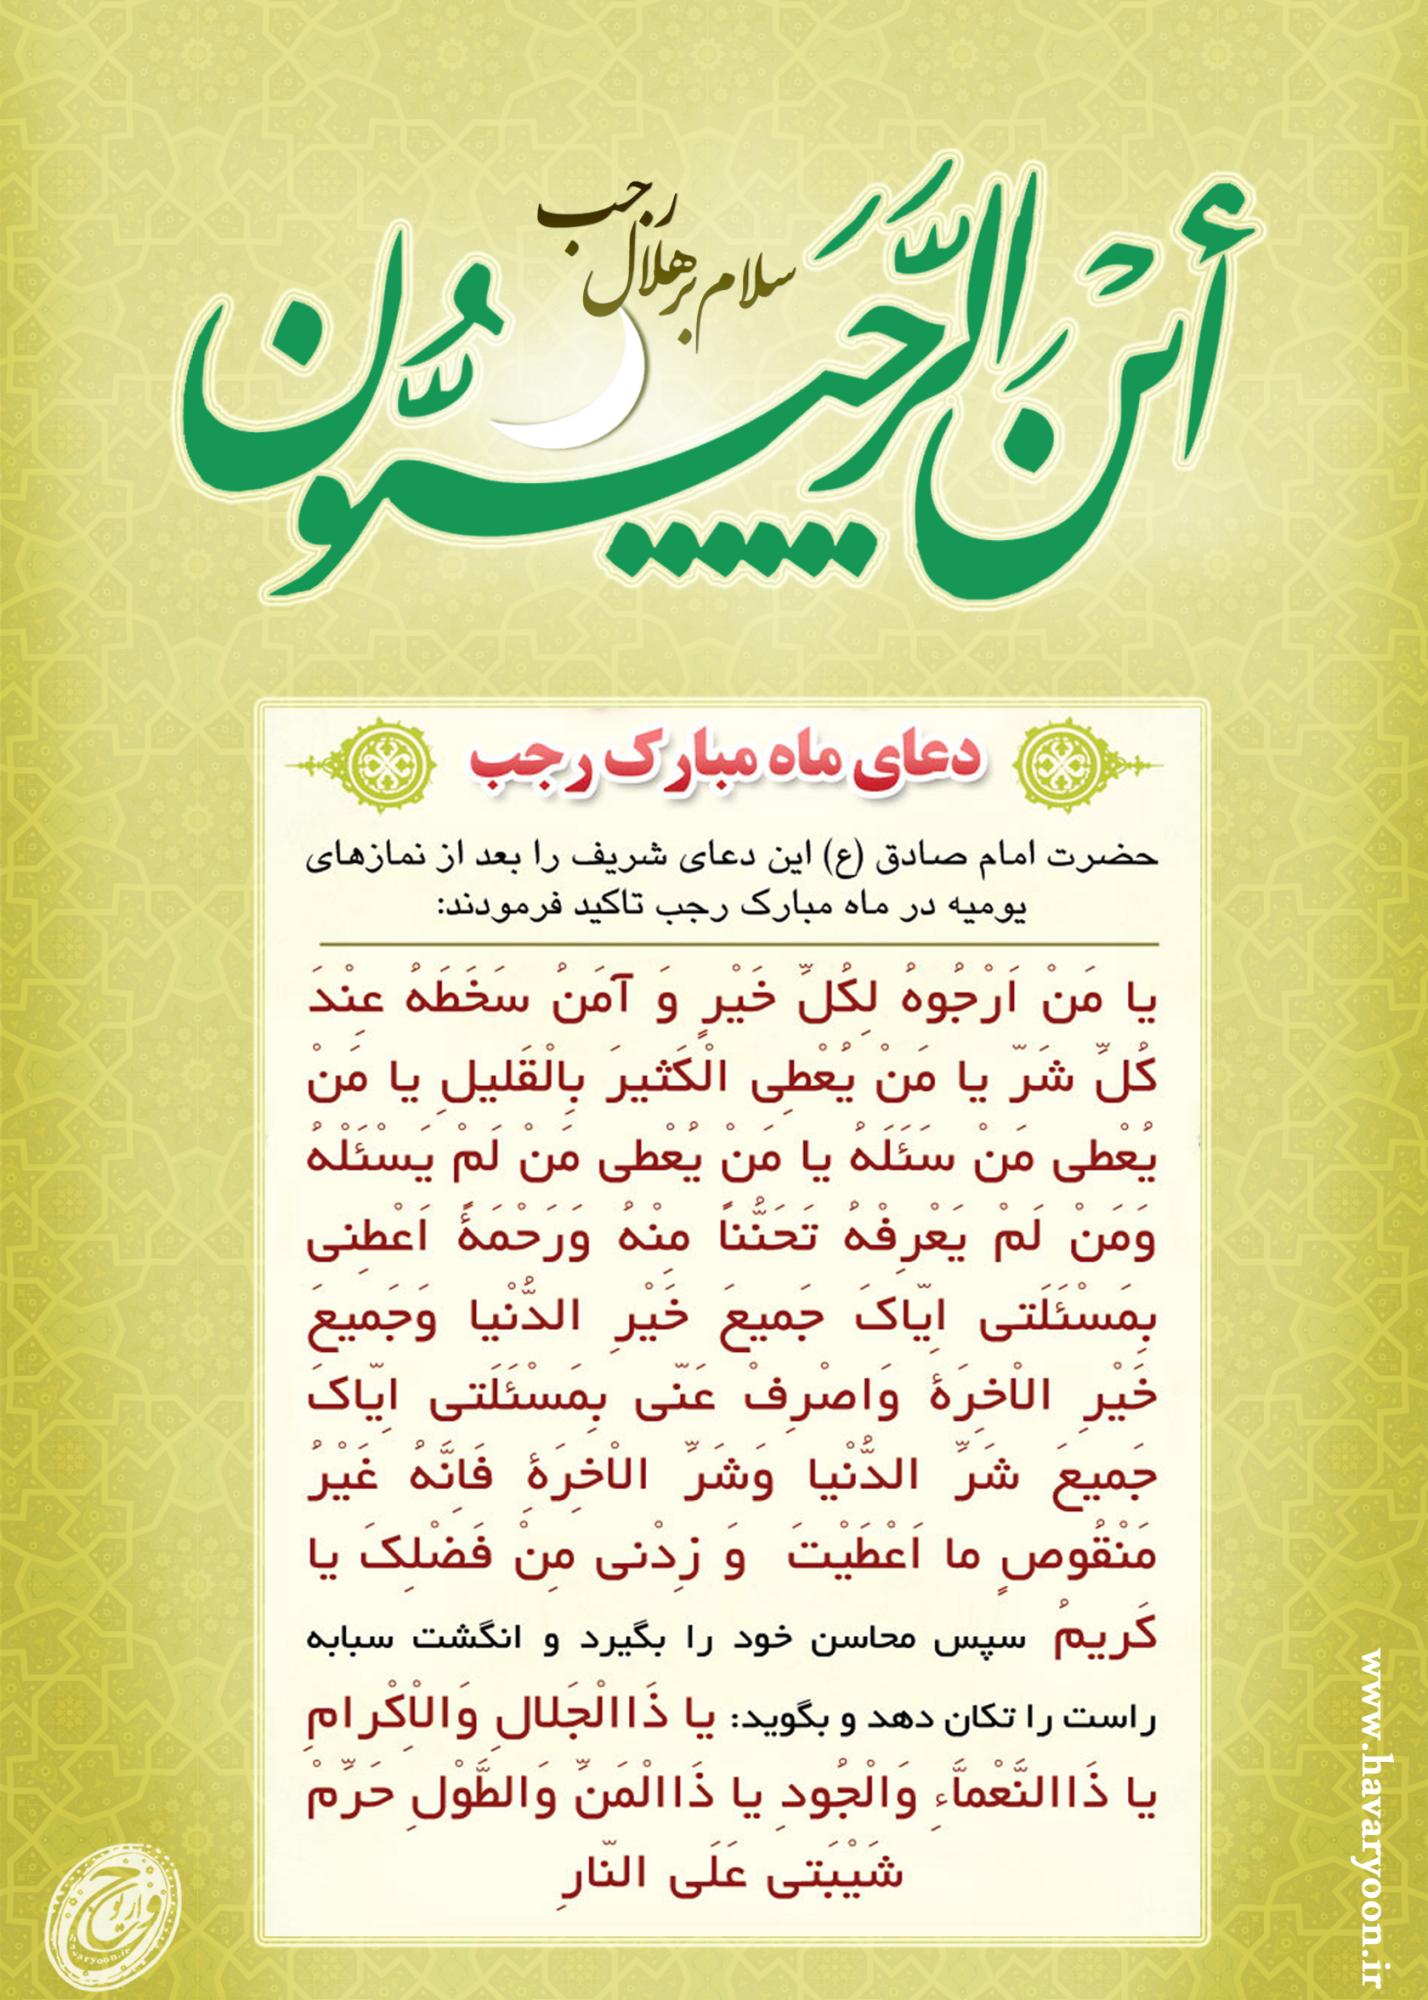 أین الرَّجَبیُّون
سلام بر هلال رجب
دعای ماه مبارک رجب
حضرت امام صادق (ع) این دعای شریف را بعد از نمازهای
یومیه در ماه مبارک رجب تاکید فرمودند:
یا مَنْ اَرْجُوهُ لِکُلِّ خَیْرٍ وَ آمَنُ سَخَطَهُ عِنْدَ
کُلِّ شَرّ یا مَنْ یُعْطِی الْکَثیرَ بِالْقَلیلِ یا مَنْ
یُعْطی مَنْ سَئَلَهُ یا مَنْ یُعْطی مَنْ لَمْ یَسْئَلْهُ
وَمَنْ لَمْ یَعْرِفْهُ تَحَنُّناً مِنْهُ وَرَحْمَةً اَعْطِنی
بِمَسْئَلَتی اِیّاکَ جَمیعَ خَیْرِ الدُّنْیا وَجَمیعَ
خَیْرِ الاْخِرَةِ وَاصْرِفْ عَنّی بِمَسْئَلَتی اِیّاکَ
جَمیعَ شَرِّ الدُّنْیا وَشَرِّ الاْخِرَةِ فَاِنَّهُ غَیْرُ
مَنْقُوصٍ ما اَعْطَیْتَ وَ زِدْنی مِنْ فَضْلِکَ یا
کَریمُ سپس محاسن خود را بگیرد و انگشت سبابه
راست را تکان دهد و بگوید: یا ذَاالْجَلالِ وَالاْکْرامِ
یا ذَاالنَّعْماَّءِ وَالْجُودِ یا ذَاالْمَنِّ وَالطَّوْلِ حَرِّمْ
شَیْبَتی عَلَی النّارِ
www.havaryoon.ir
حواریون
havaryoon.ir